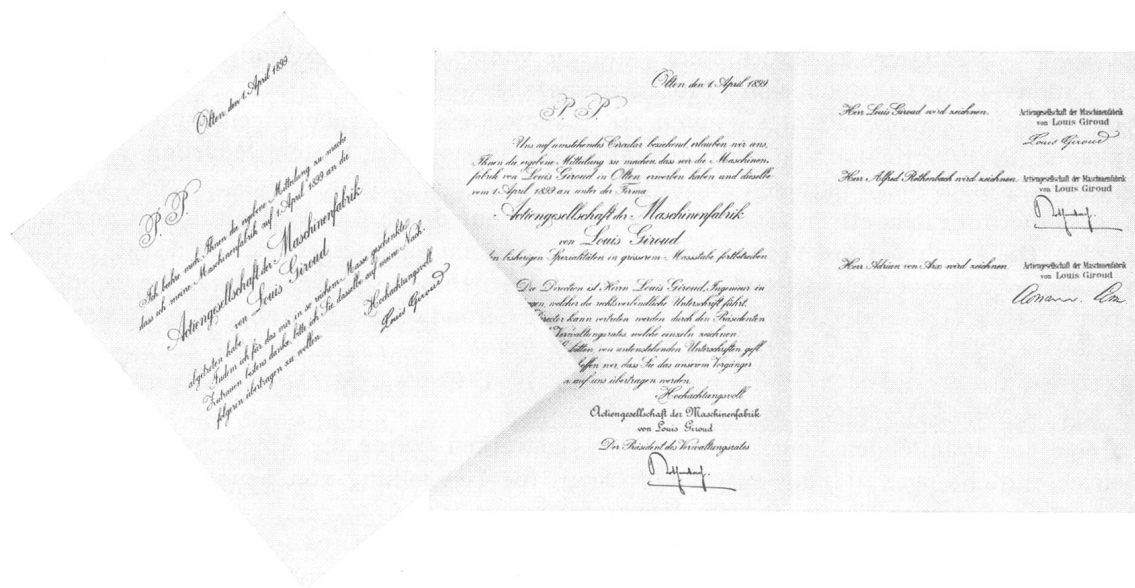 Olten, den 1. April 1899.
P. P.
Ich beehre mich Ihnen die ergebene Mitteilung zu machen
dass ich meine Maschinenfabrik auf 1. April 1899 an die
Actiengesellschaft der Maschinenfabrik
von Louis Giroud
abgetreten habe.
Indem ich für das mir in so reichem Masse geschenkte
Zutrauen bestens danke, bitte ich Sie dasselbe auf meine Nach-
folgerin übertragen zu wollen.
Hochachtungsvoll
Louis Giroud
Olten, den 1. April 1899.
P. P.
Uns auf umstehendes Circular beziehend, erlauben wir uns,
Ihnen die ergebene Mitteilung zu machen, dass wir die Maschinen-
fabrik von Louis Giroud in Olten erworben haben und dieselbe
vom 1. April 1899 an unter der Firma
Actiengesellschaft der Maschinenfabrik
von Louis Giroud
den bisherigen Spezialitäten in grösserem Massstabe fortbetreiben
Die Direction ist Herrn Louis Giroud, Ingenieur in
gen, welcher die rechtsverbindliche Unterschrift führt.
Director kann vertreten werden durch den Präsidenten
Verwaltungsrates, welche einzeln zeichnen.
bitten, von untenstehenden Unterschriften gefl.
hoffen wir, dass Sie das unserem Vorgänger
auf uns übertragen werden.
Hochachtungsvoll
Actiengesellschaft der Maschinenfabrik
von Louis Giroud
Der Präsident des Verwaltungsrates
Herr Louis Giroud wird zeichnen.
Actiengesellschaft der Maschinenfabrik
von Louis Giroud
Louis Giroud
Herr Alfred Rothenbach wird zeichnen.
Actiengesellschaft der Maschinenfabrik
von Louis Giroud
Herr Adrian von Arx wird zeichnen.
Actiengesellschaft der Maschinenfabrik
von Louis Giroud